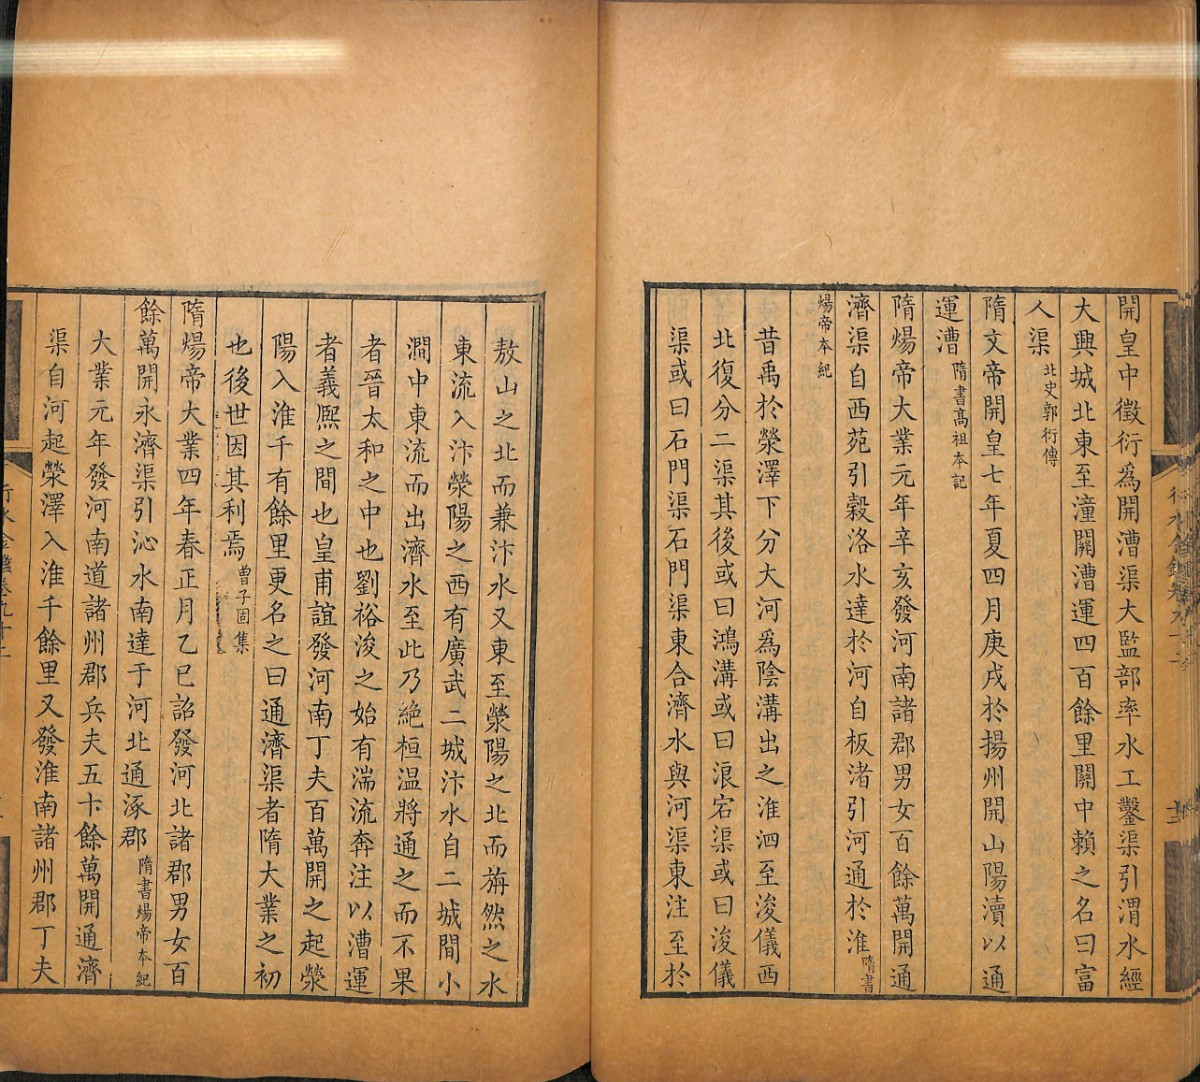 開皇中徵衍爲開漕渠大監部率水工鑿渠引渭水經
大興城北東至潼關漕運四百餘里關中賴之名曰富
人渠 北史郭衍傳
隋文帝開皇七年夏四月庚戌於揚州開山陽瀆以通
運漕 隋書髙祖本記
隋煬帝大業元年辛亥發河南諸郡男女百餘萬開通
濟渠自西苑引榖洛水達於河自板渚引河通於淮 隋書
煬帝本紀
昔禹於滎澤下分大河爲陰溝出之淮泗至浚儀西
北復分二渠其後或曰鴻溝或曰浪宕渠或曰浚儀
渠或曰石門渠石門渠東合濟水與河渠東注至於
敖山之北而兼汴水又東至滎陽之北而旃然之水
東流入汴滎陽之西有廣武二城汴水自二城間小
澗中東流而出濟水至此乃絶桓温將通之而不果
者晉太和之中也劉裕浚之始有湍流奔注以漕運
者義熈之間也皇甫誼發河南丁夫百萬開之起滎
陽入淮千有餘里更名之曰通濟渠者隋大業之初
也後世因其利焉 曽子固集
隋煬帝大業四年春正月乙巳詔發河北諸郡男女百
餘萬開永濟渠引沁水南達于河北通涿郡 隋書煬帝本紀
大業元年發河南道諸州郡兵夫五十餘萬開通濟
渠自河起滎澤入淮千餘里又發淮南諸州郡丁夫